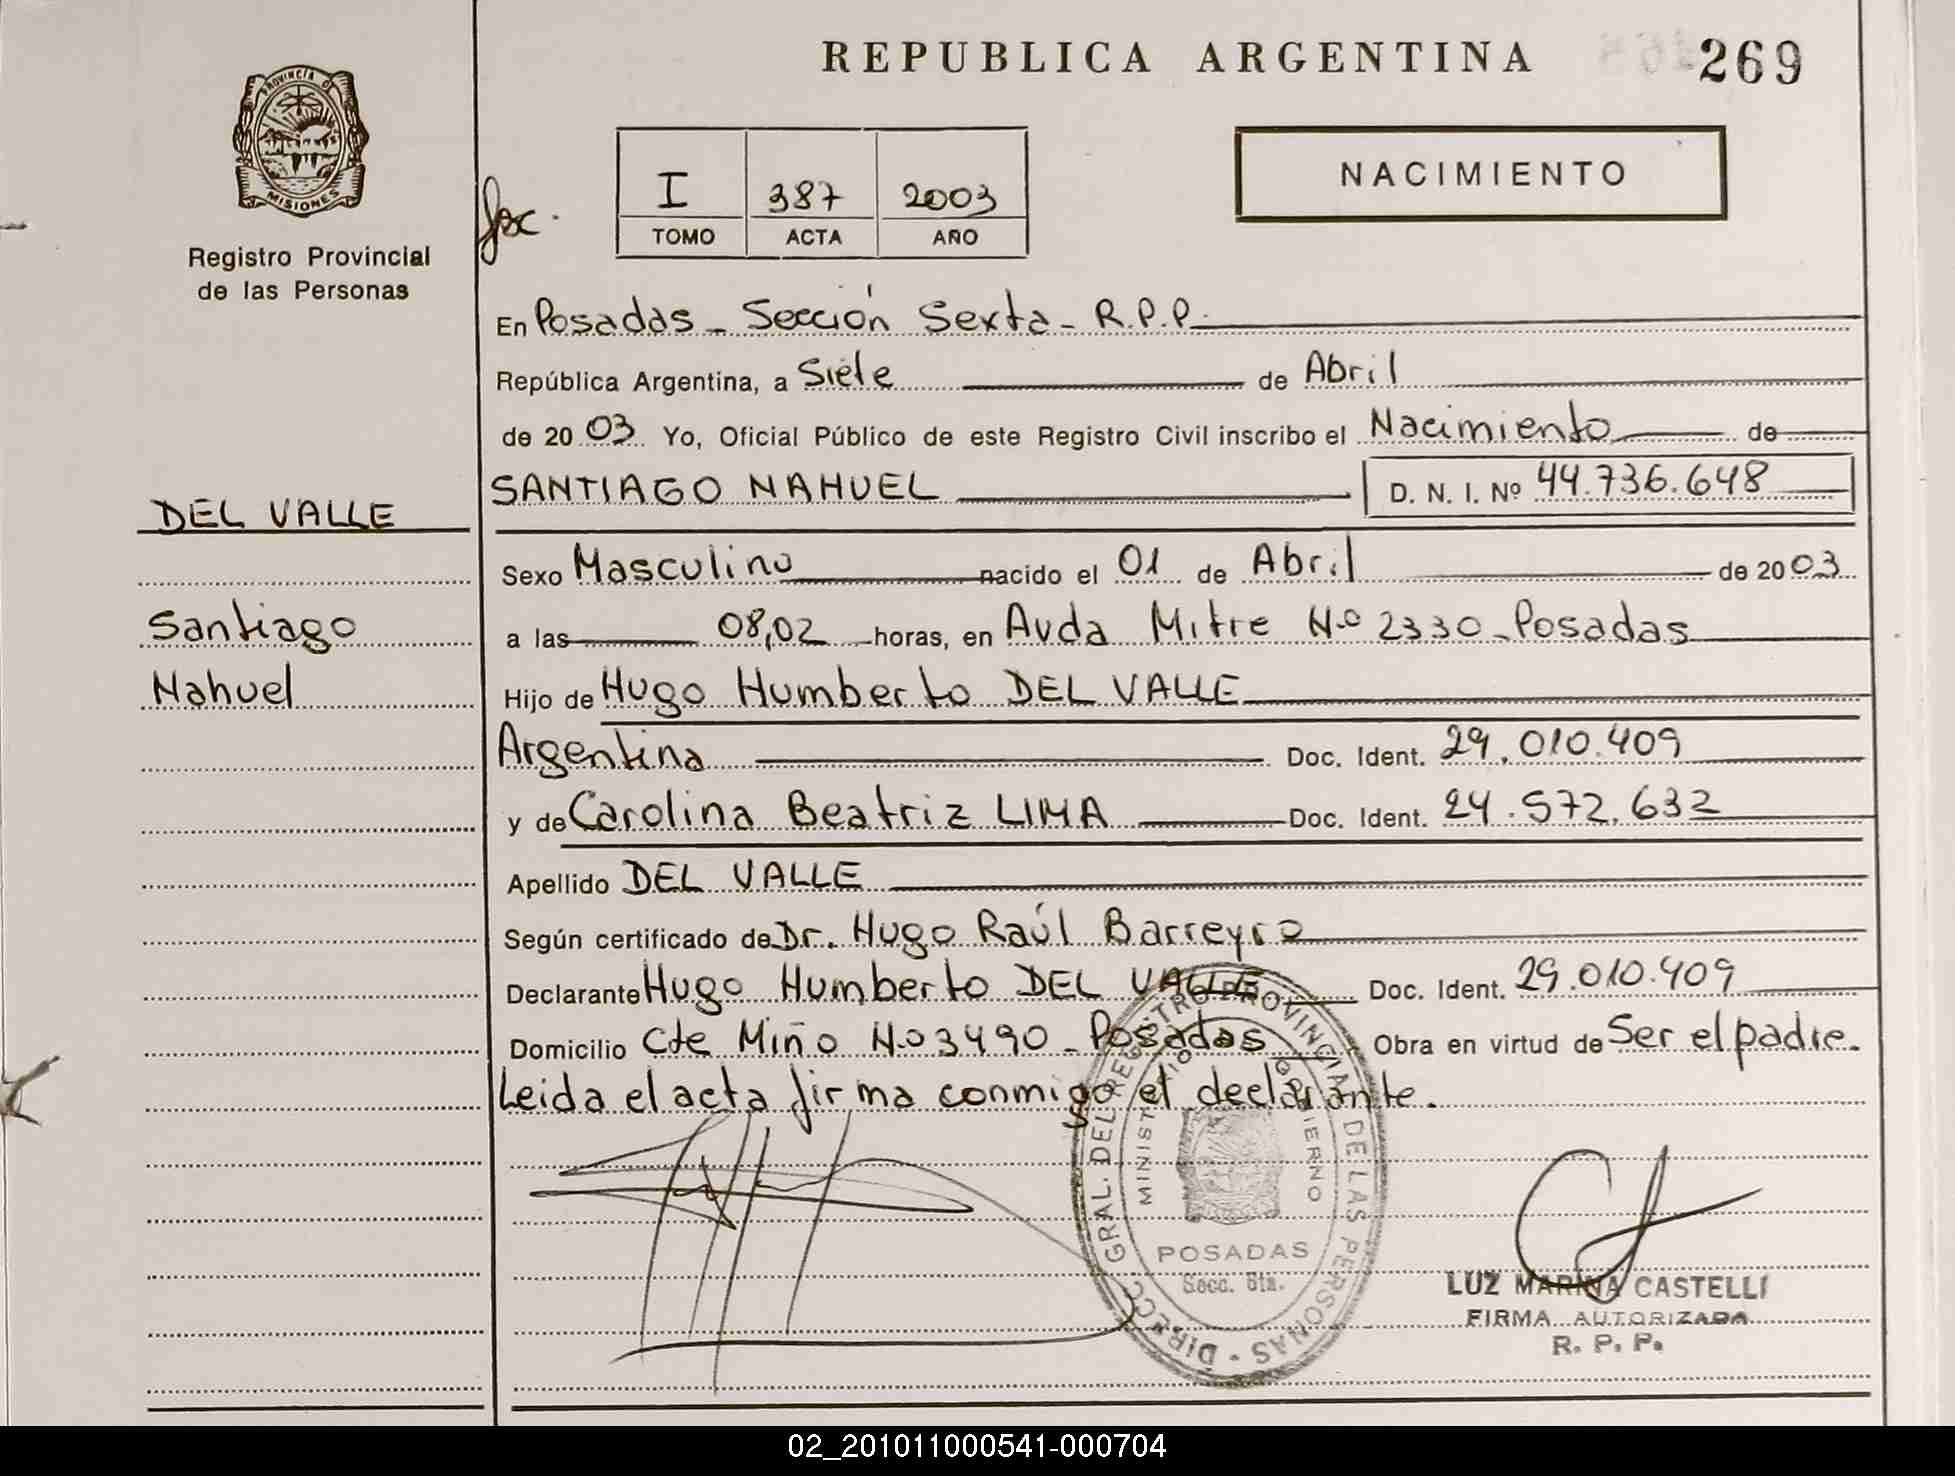 REPUBLICA ARGENTINA 269
PROVINCIA DE
MISIONES
Registro Provincial
de las Personas
I 387 2003
TOMO ACTA AÑO
NACIMIENTO
En Posadas - Sección Sexta - R.P.P.
República Argentina, a Siete de Abril
de 2003 Yo, Oficial Público de este Registro Civil inscribo el Nacimiento de
SANTIAGO NAHUEL D. N. I. Nº 44.736.648
DEL VALLE
Santiago
Nahuel
Sexo Masculino nacido el 01 de Abril de 2003
a las 08,02 horas, en Avda Mitre Nº 2330 - Posadas
Hijo de Hugo Humberto DEL VALLE
Argentina Doc. Ident. 29.010.409
y de Carolina Beatriz LIMA Doc. Ident. 24.572.632
Apellido DEL VALLE
Según certificado de Dr. Hugo Raúl Barreyro
Declarante Hugo Humberto DEL VALLE Doc. Ident. 29.010.409
Domicilio Cte Miño Nº 3490 - Posadas Obra en virtud de Ser el padre.
Leida el acta firma conmigo el declarante.
DIRECC. GRAL. DEL REGISTRO PROVINCIAL DE LAS PERSONAS
POSADAS
Secc. 6ta.
LUZ MARINA CASTELLI
FIRMA AUTORIZADA
R. P. P.
02_201011000541-000704